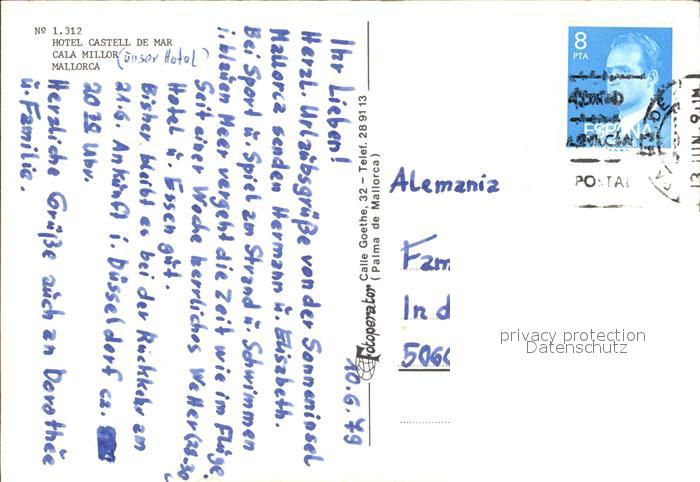 Nº 1.312
HOTEL CASTELL DE MAR
CALA MILLOR (unser Hotel)
MALLORCA
10.6.79
Ihr Lieben!
Herzl. Urlaubsgrüße von der Sonneninsel
Mallorca senden Hermann u. Elisabeth.
Bei Sport u. Spiel am Strand u. Schwimmen
i. blauen Meer vergeht die Zeit wie im Fluge.
Seit einer Woche herrliches Wetter (28-30
Hotel u. Essen gut.
Bisher bleibt es bei der Rückkehr am
21.6. Ankunft i. Düsseldorf ca.
20 35 Uhr.
Herzliche Grüße auch an Dorothée
u. Familie.
Fotoperator Calle Goethe, 32 – Telef. 28 91 13
(Palma de Mallorca)
8
PTA
ESPAÑA
POSTAL
13 JUN
Alemania
Fam
In d
506
privacy protection
Datenschutz